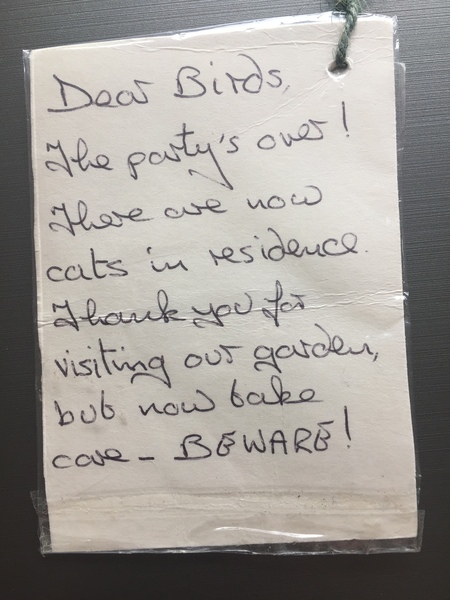 Dear Birds,
The party's over!
There are now
cats in residence.
Thank you for
visiting our garden,
but now take
care - BEWARE!